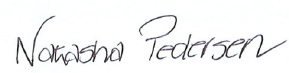 Natasha Pedersen